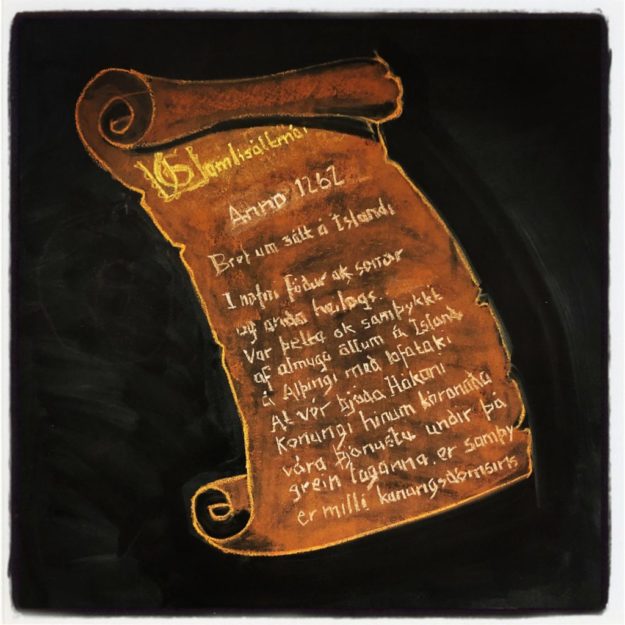 Gamli sáttmáli
Anno 1262
Bref um sátt á Íslandi
I nafni födur ok sonar
og anda heilags.
Var þetta ok samþykkt
af almuga öllum á Ísland
á Alþingi með lofataki
At vér bjóða Hákoni
konungi hinum kórónaða
vára þjónustu undir þá
grein laganna, er samþy
er milli konungsdómsins